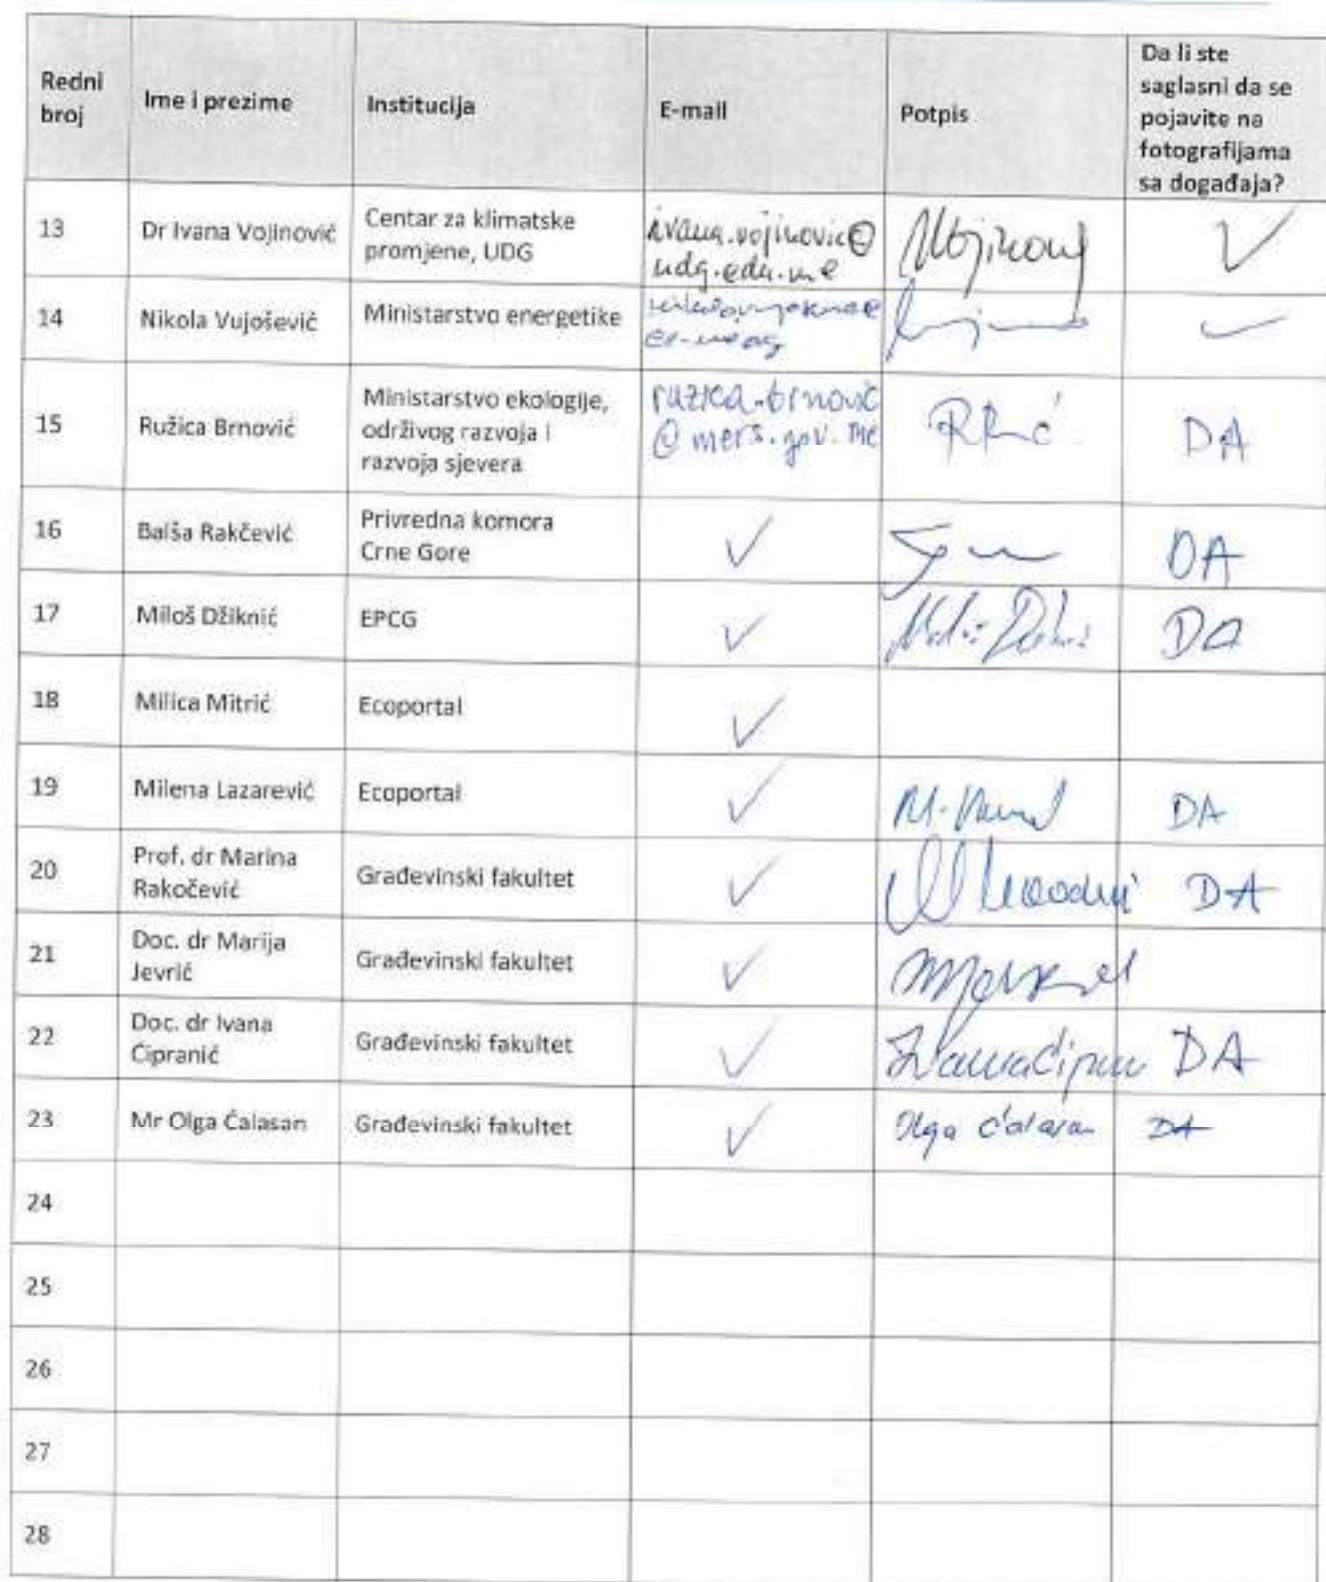 Redni broj
Ime i prezime
Institucija
E-mail
Potpis
Da li ste
saglasni da se
pojavite na
fotografijama
sa događaja?
13
Dr Ivana Vojinović
Centar za klimatske
promjene, UDG
ivana.vojinovic@
udg.edu.me
✓
14
Nikola Vujošević
Ministarstvo energetike
✓
15
Ružica Brnović
Ministarstvo ekologije,
održivog razvoja i
razvoja sjevera
ruzica.brnovic
@mers.gov.me
DA
16
Balša Rakčević
Privredna komora
Crne Gore
✓
DA
17
Miloš Džiknić
EPCG
✓
DA
18
Milica Mitrić
Ecoportal
✓
19
Milena Lazarević
Ecoportal
✓
DA
20
Prof. dr Marina
Rakočević
Građevinski fakultet
✓
DA
21
Doc. dr Marija
Jevrić
Građevinski fakultet
✓
22
Doc. dr Ivana
Ćipranić
Građevinski fakultet
✓
DA
23
Mr Olga Ćalasan
Građevinski fakultet
✓
Olga Ćalasan
DA
24
25
26
27
28